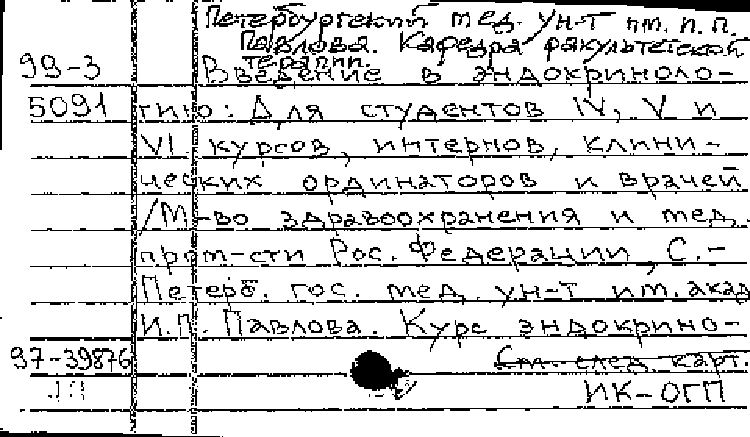 Петербургский мед. ун-т им. И. П.
Павлова. Кафедра факультетской
терапии.
99-3 Введение в эндокриноло-
5091 гию: Для студентов IV, V и
VI курсов, интернов, клини-
ческих ординаторов и врачей
/М-во здравоохранения и мед.
пром-сти Рос. Федерации, С.-
Петерб. гос. мед. ун-т им. акад.
И.П. Павлова. Курс эндокрино-
97-39876 См. след. карт.
ИК-ОГП